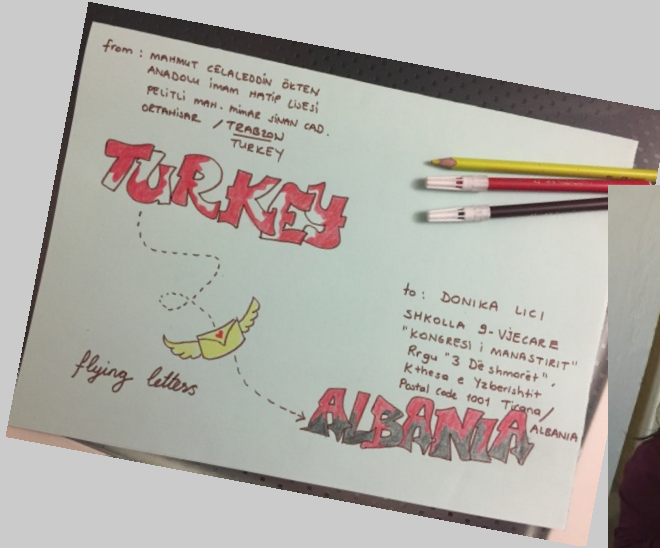 from : MAHMUT CELALEDDİN ÖKTEN
ANADOLU İMAM HATİP LİSESİ
PELİTLİ MAH. MİMAR SİNAN CAD.
ORTAHİSAR / TRABZON
TURKEY
TURKEY
flying letters
to : DONIKA LICI
SHKOLLA 9-VJECARE
"KONGRESI i MANASTIRIT"
Rrgu "3 Dëshmorët".
Kthesa e Yzberishtit
Postal Code 1001 Tirana/
ALBANIA
ALBANIA